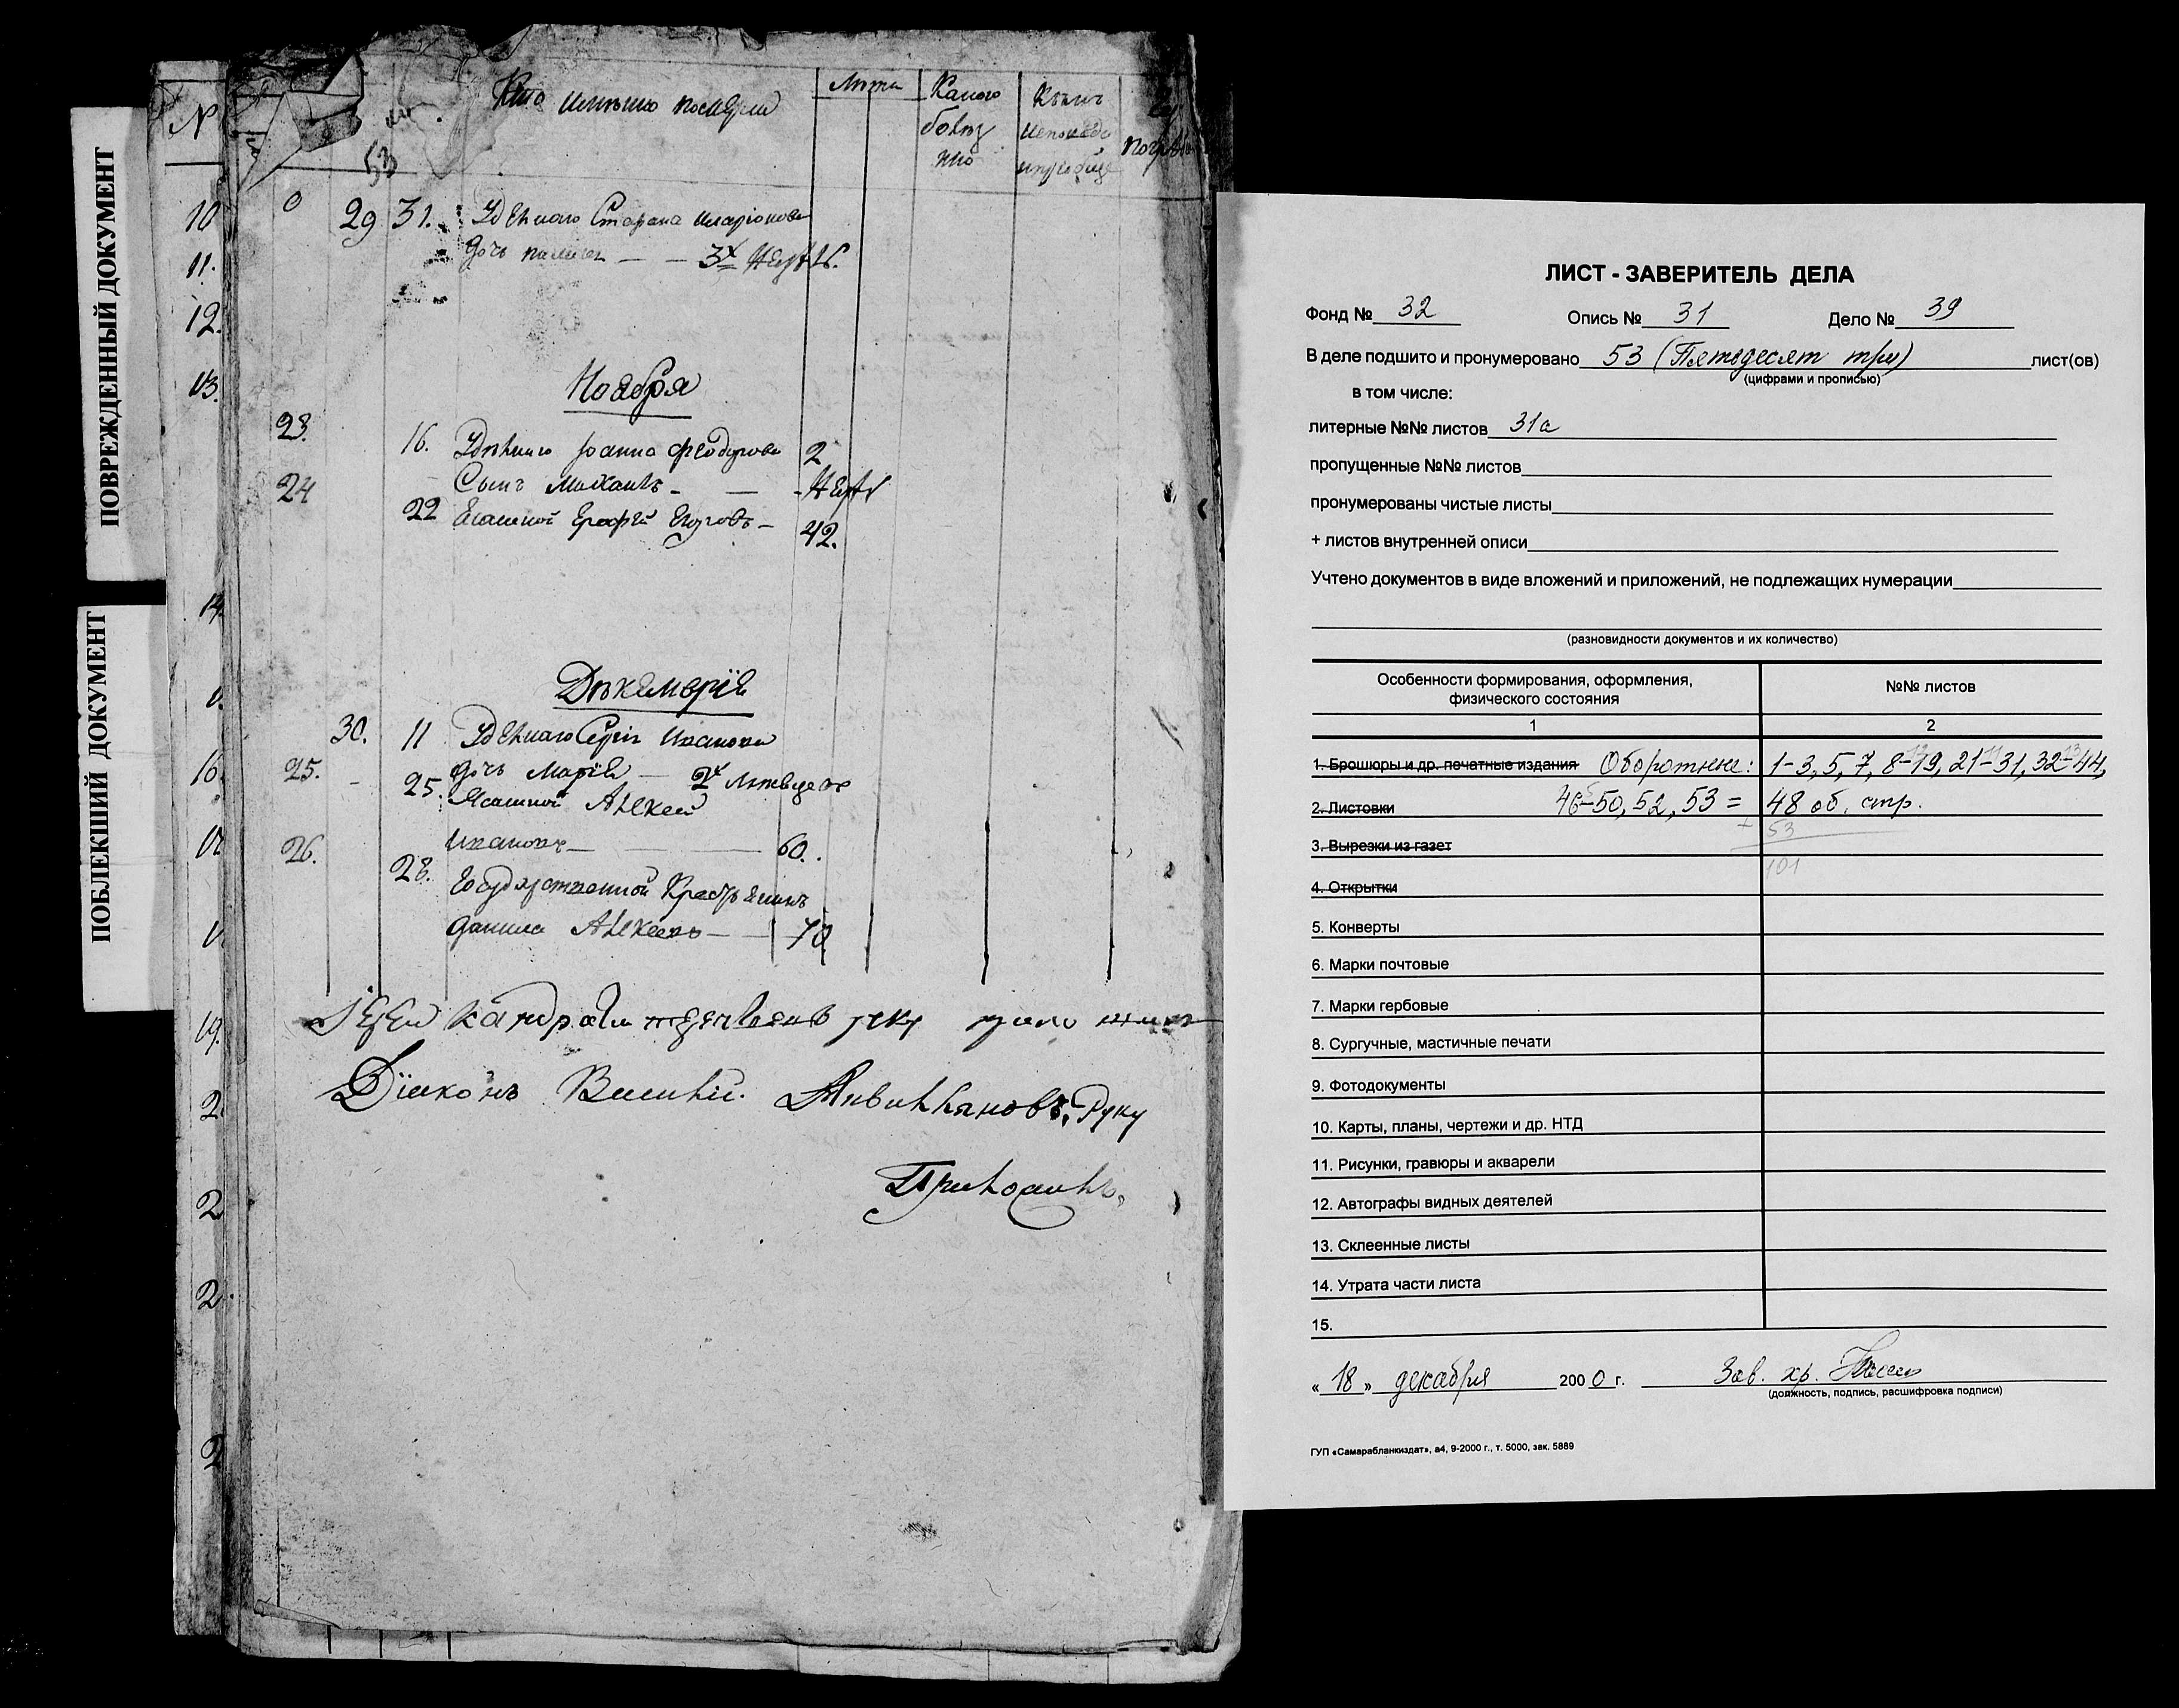 ПОВРЕЖДЕННЫЙ ДОКУМЕНТ
ПОБЛЕКШИЙ ДОКУМЕНТ
№
10
11.
12.
13.
16.
19.
53
Кто имянно померли
Лѣта
Какою
болѣз
нію
Кѣмъ
исповеда
29 31. Удѣлнаго Иларіонова
дочь 3х недѣль.
Ноября
23. 16. Удѣлнаго Иоанна Феодорова 2
Сынъ Михаилъ - — недѣл
24 22 Ясашной Ерофей Егоровъ - 42.
Декемврїе
30. 11 Удѣлнаго Сергія Иванова
дочь Марія — 2х
25. 25. Ясашной Алексей
Ивановъ — 60.
26. 28. Государственной Крестьянинъ
Данила Алексеевъ — 70
Иерей руку приложилъ
Дїаконъ Василій Руку
Приложилъ.
ЛИСТ - ЗАВЕРИТЕЛЬ ДЕЛА
Фонд № 32 Опись № 31 Дело № 39
В деле подшито и пронумеровано 53 (Пятьдесят три) лист(ов)
(цифрами и прописью)
в том числе:
литерные №№ листов 31а
пропущенные №№ листов
пронумерованы чистые листы
+ листов внутренней описи
Учтено документов в виде вложений и приложений, не подлежащих нумерации
(разновидности документов и их количество)
Особенности формирования, оформления,
физического состояния
№№ листов
1 2
1. Брошюры и др. печатные издания Оборотные: 1-3, 5, 7, 8-19, 21-31, 32-44,
2. Листовки 46-50, 52, 53 = 48 об. стр.
+ 53
3. Вырезки из газет
101
4. Открытки
5. Конверты
6. Марки почтовые
7. Марки гербовые
8. Сургучные, мастичные печати
9. Фотодокументы
10. Карты, планы, чертежи и др. НТД
11. Рисунки, гравюры и акварели
12. Автографы видных деятелей
13. Склеенные листы
14. Утрата части листа
15.
« 18 » декабря 200 0 г. Зав. хр.
(должность, подпись, расшифровка подписи)
ГУП «Самарабланкиздат», а4, 9-2000 г., т. 5000, зак. 5889